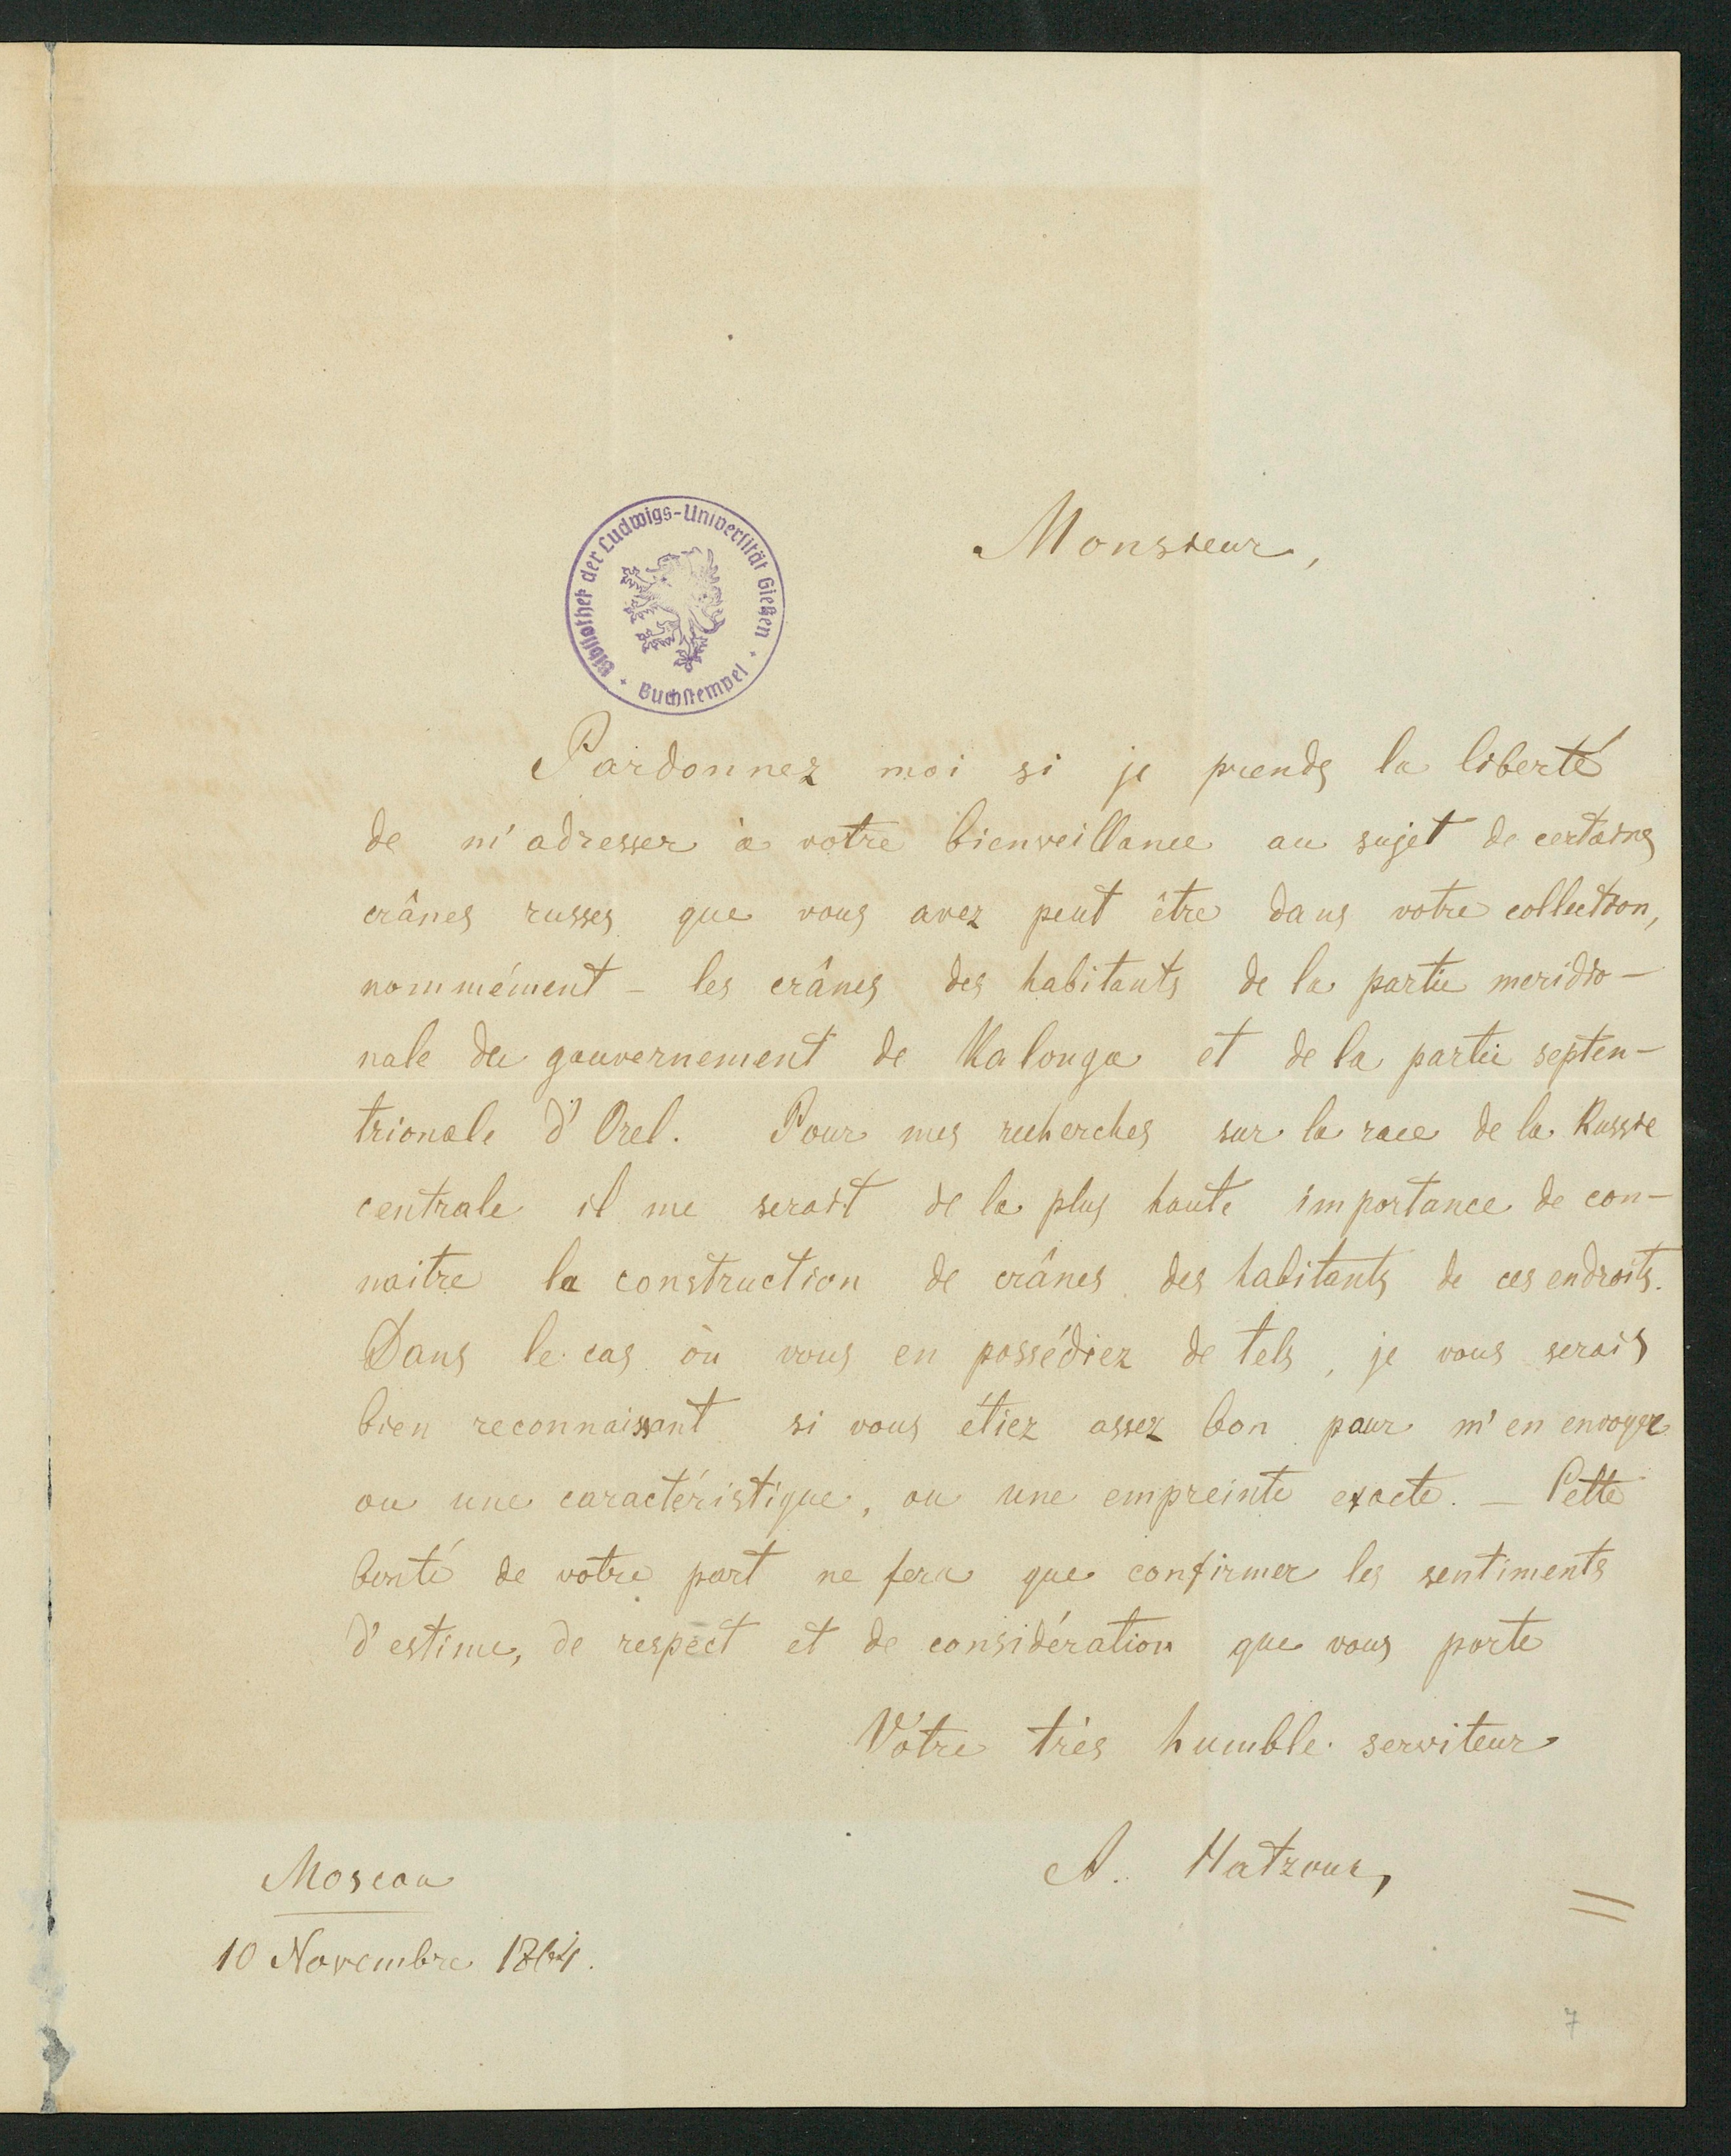 Monsieur,
Bibliothek der Ludwigs-Universität Gießen · Buchstempel ·
Pardonnez moi si je prends la liberté
de m'adresser à votre bienveillance au sujet de certains
crânes russes que vous avez peut être dans votre collection,
nommément – les crânes des habitants de la partie meridio-
nale du gouvernement de Kalouga et de la partie septen-
trionale d'Orel. Pour mes recherches sur la race de la Russie
centrale il me serait de la plus haute importance de con-
naitre la construction de crânes des habitants de ces endroits.
Dans le cas où vous en possédiez de tels, je vous serais
bien reconnaissant si vous étiez assez bon pour m'en envoyer
ou une caractéristique, ou une empreinte exacte. – Cette
bonté de votre part ne fera que confirmer les sentiments
d'estime, de respect et de considération que vous porte
Vôtre très humble serviteur
A.
Moscou
10 Novembre 1864.
7